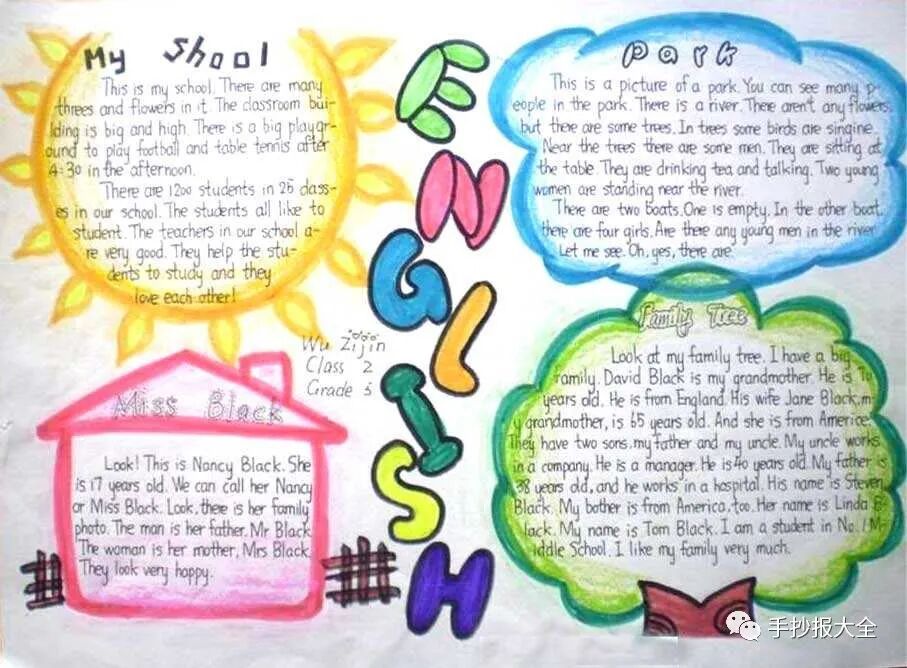 My Shool
This is my school. There are many
threes and flowers in it. The classroom bui-
lding is big and high. There is a big playgr-
ound to play football and table tennis after
4:30 in the afternoon.
There are 1200 students in 25 class-
es in our school. The students all like to
student. The teachers in our school a-
re very good. They help the stu-
dents to study and they
love each other!
ENGLISH
Park
This is a picture of a park. You can see many p-
eople in the park. There is a river. There aren't any flowers,
but there are some trees. In trees some birds are singine.
Near the trees there are some men. They are sitting at
the table. They are drinking tea and talking. Two young
women are standing near the river.
There are two boats. One is empty. In the other boat,
there are four girls. Are there any young men in the river
Let me see. Oh, yes, there are.
Wu Zijin
Class 2
Grade 5
Miss Black
Look! This is Nancy Black. She
is 17 years old. We can call her Nancy
or Miss Black. Look, there is her family
photo. The man is her father, Mr Black
The woman is her mother, Mrs Black.
They look very happy.
Family Tree
Look at my family tree. I have a big
family. David Black is my grandmother. He is 70
years old. He is from England. His wife Jane Black, m-
y grandmother, is 65 years old. And she is from America.
They have two sons, my father and my uncle. My uncle works
in a company. He is a manager. He is 40 years old. My father is
38 years old, and he works in a hospital. His name is Steven
Black. My bother is from America, too. Her name is Linda B-
lack. My name is Tom Black. I am a student in No. 1 M-
iddle School. I like my family very much.
手抄报大全